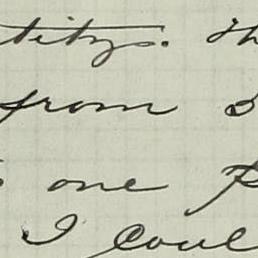 tity. Th
from
one
I coul